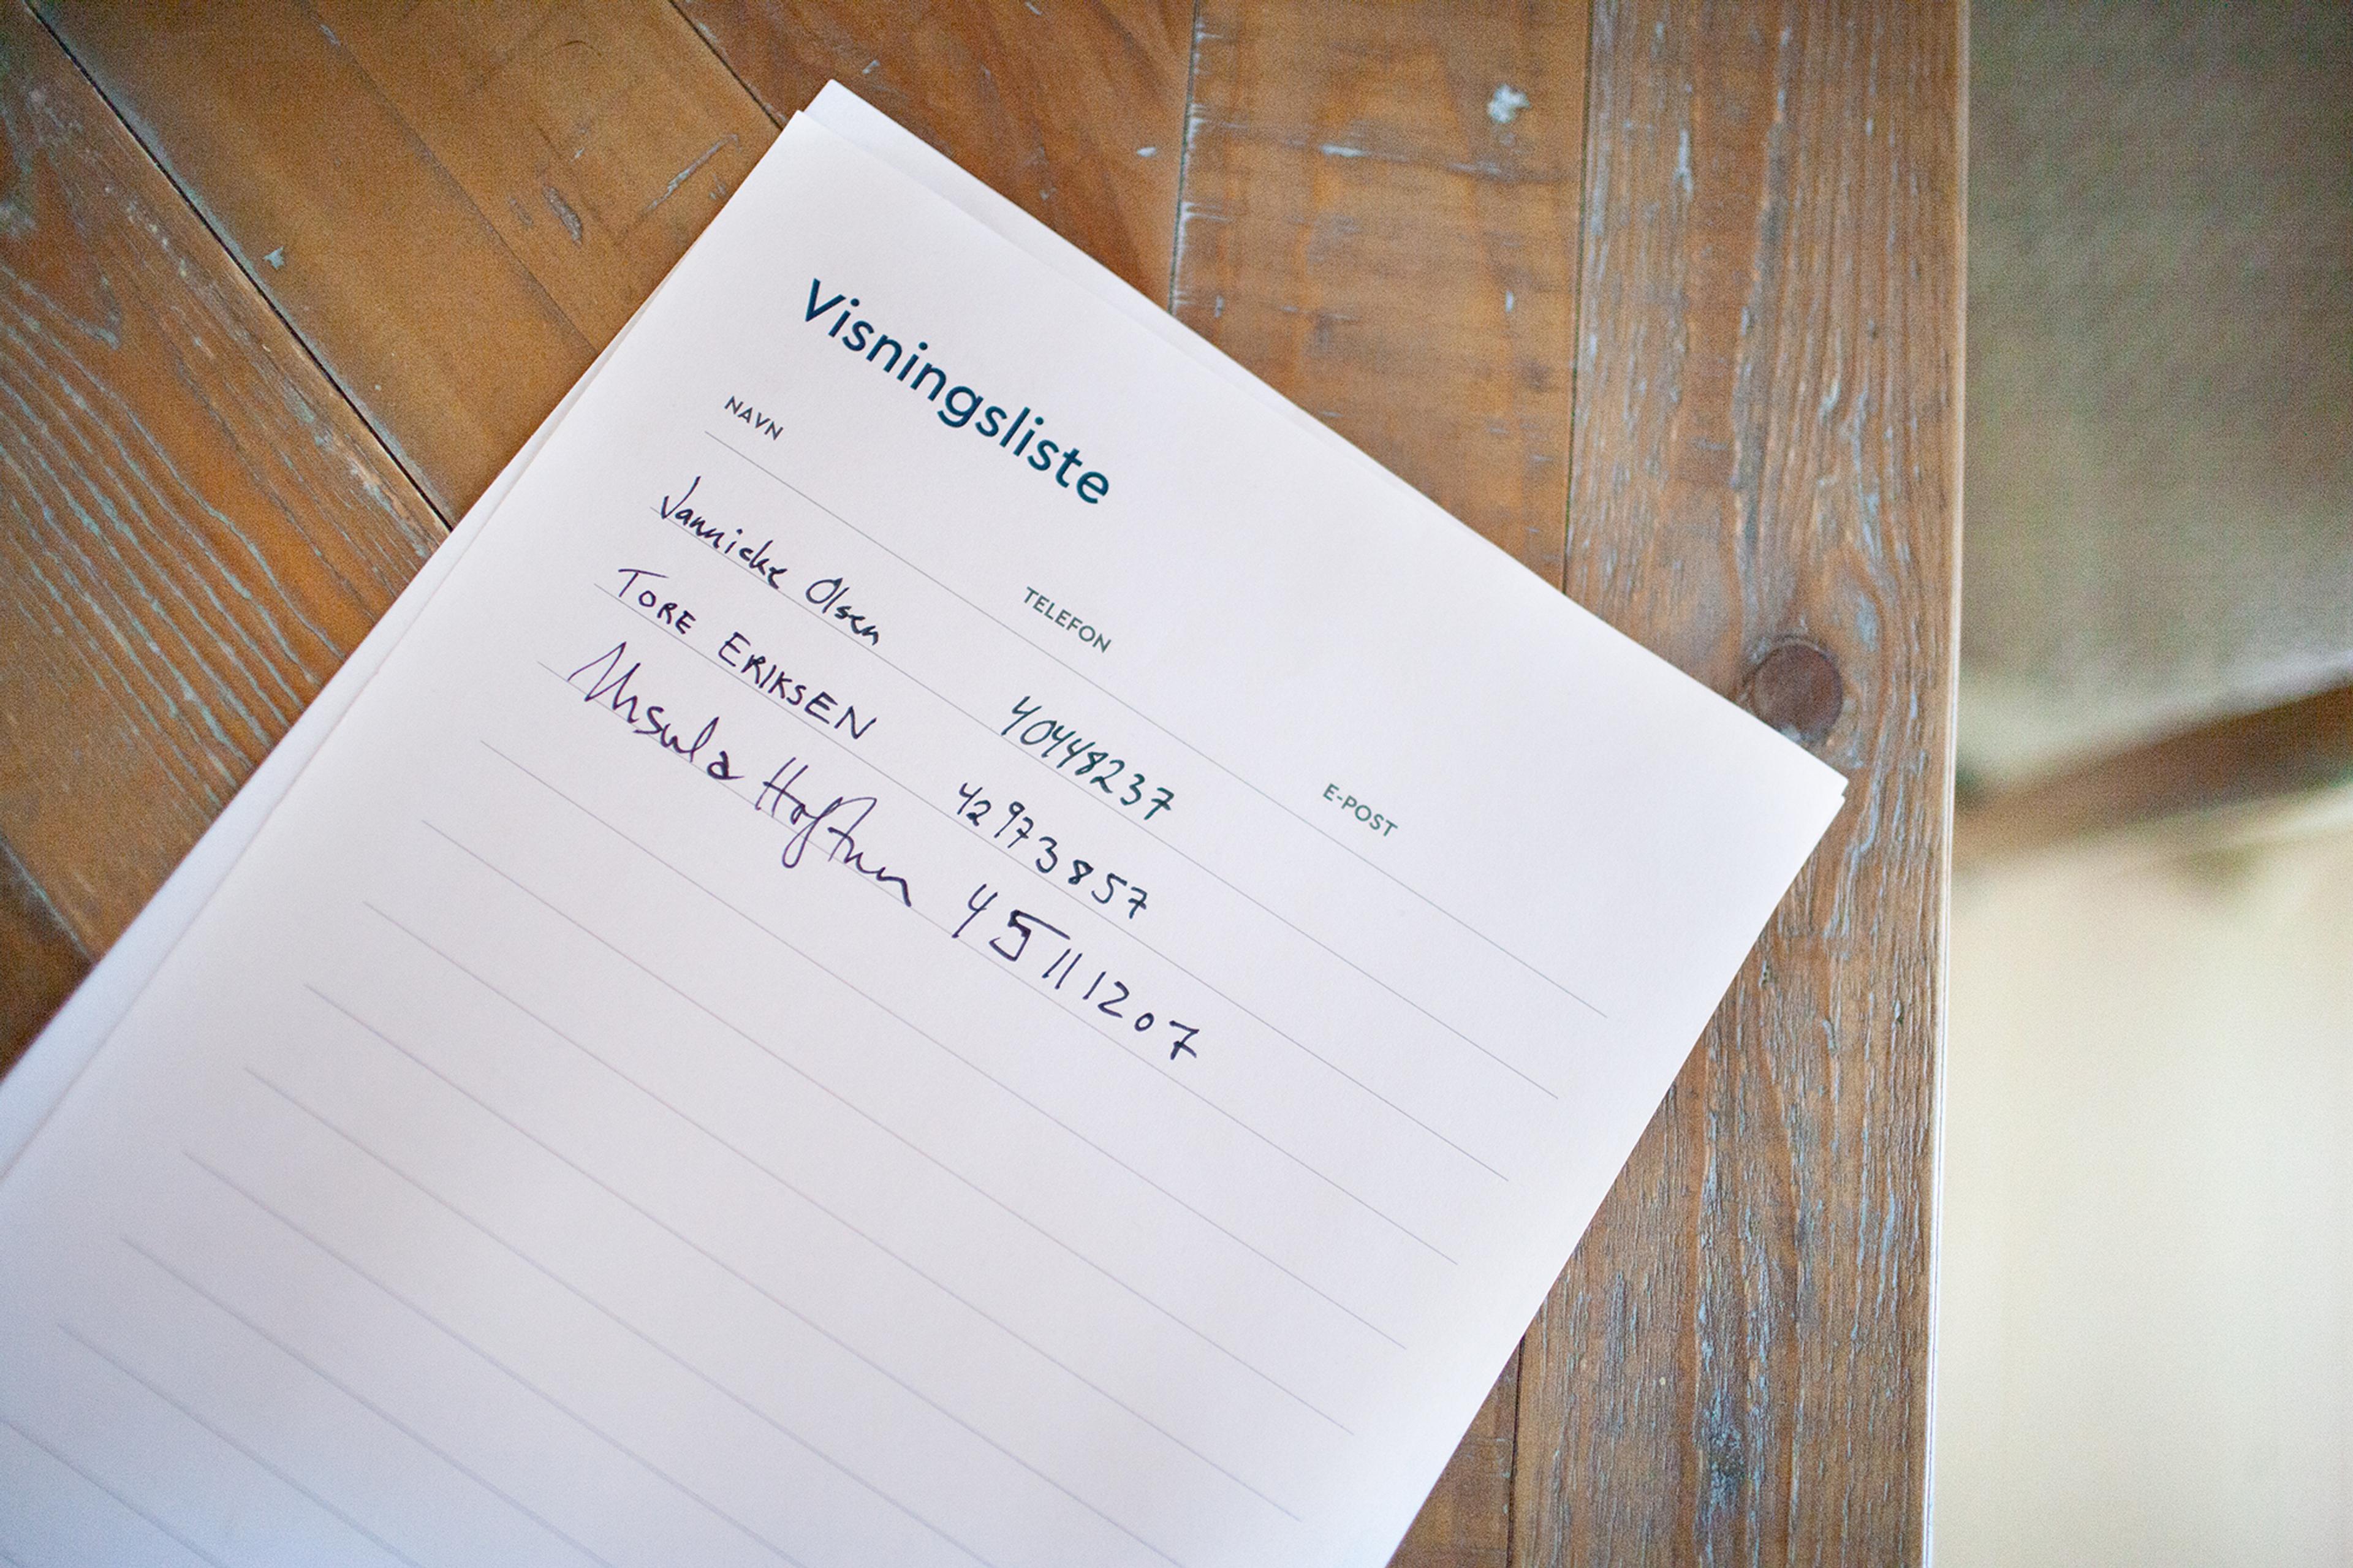 Visningsliste
NAVN TELEFON E-POST
Jannicke Olsen 40448237
TORE ERIKSEN 42973857
Ursula Hoftun 45111207